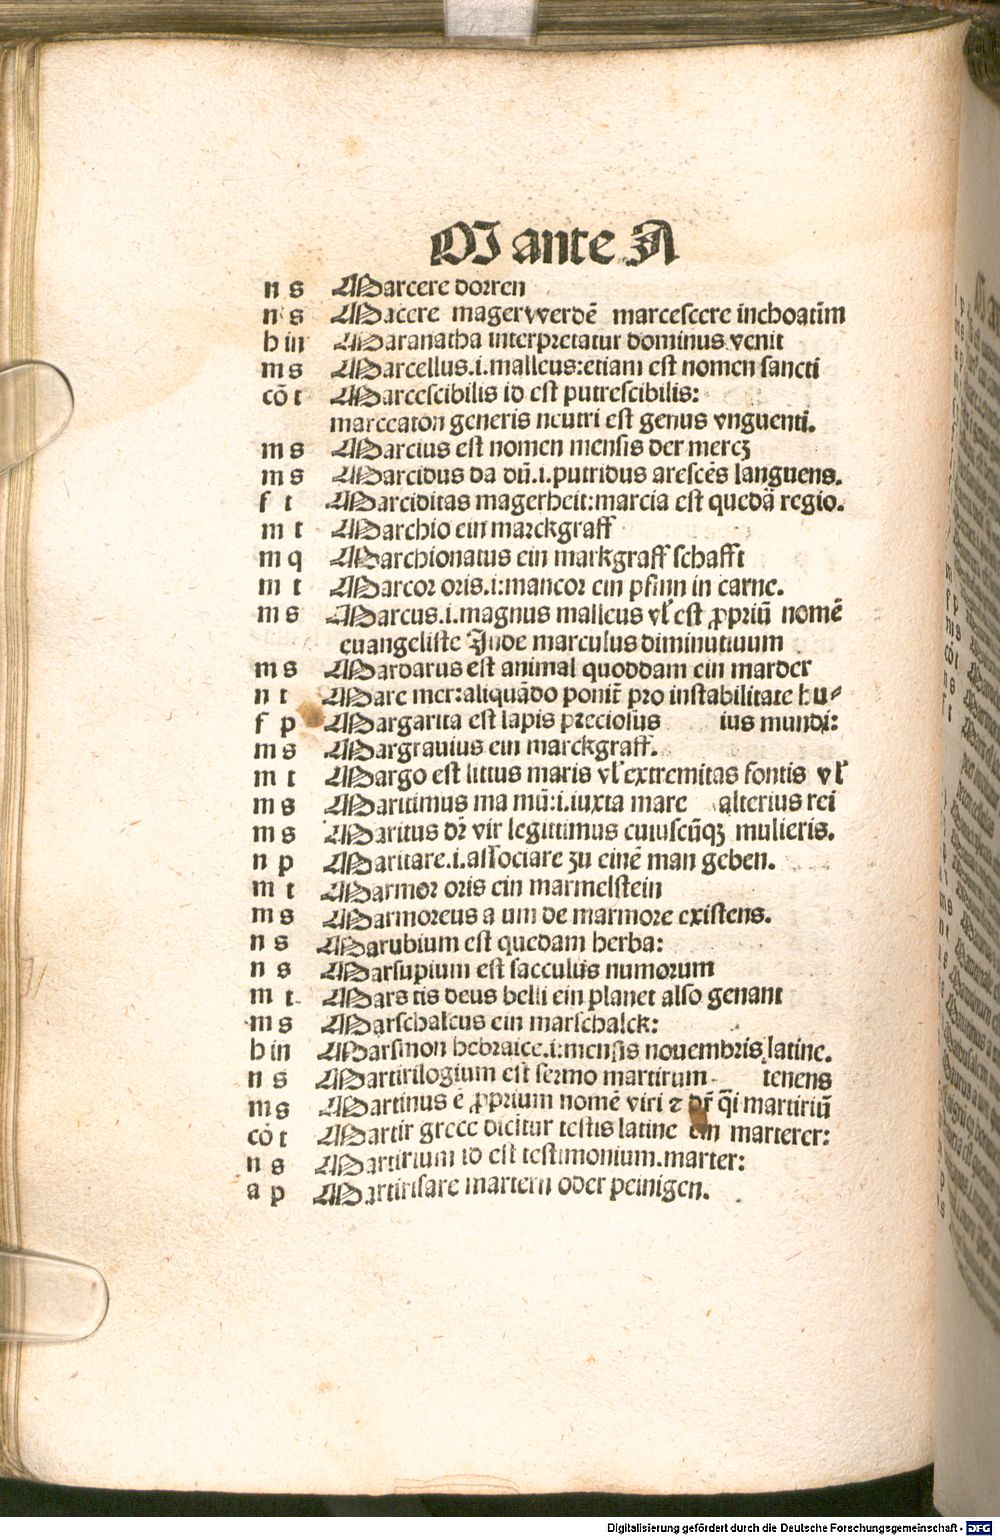 M ante A
n s Marcere dorren
n s Macere magerwerdē marcescere inchoatim
h in Maranatha interpretatur dominus venit
m s Marcellus.i.malleus:etiam est nomen sancti
cō t Marcescibilis id est putrescibilis:
marceaton generis neutri est genus vnguenti.
m s Marcius est nomen mensis der mercz
m s Marcidus da dū.i.putridus arescēs languens.
f t Marciditas magerheit:marcia est quedā regio.
m t Marchio ein marckgraff
m q Marchionatus ein markgraff schafft
m t Marcor oris.i:mancor ein pfinn in carne.
m s Marcus.i.magnus malleus vł est ꝓpriū nomē
euangeliste Inde marculus diminutiuum
m s Mardarus est animal quoddam ein marder
n t Mare mer:aliquādo ponit̄ pro instabilitate hu⸗
f p Margarita est lapis preciosus ius mundi:
m s Margrauius ein marckgraff.
m t Margo est littus maris vł extremitas fontis vł
m s Maritimus ma mū:i.iuxta mare alterius rei
m s Maritus dꝛ̄ vir legittimus cuiuscūqꝫ mulieris.
n p Maritare.i.associare zu einē man geben.
m t Marmor oris ein marmelstein
m s Marmoreus a um de marmore existens.
n s Marubium est quedam herba:
n s Marsupium est sacculus numorum
m t Mars tis deus belli ein planet also genant
m s Marschalcus ein marschalck:
h in Marsmon hebraice.i:mensis nouembris latine.
n s Martirilogium est sermo martirum tenens
m s Martinus ē ꝓprium nomē viri ⁊ dr̄ q̄i martiriū
cō t Martir grece dicitur testis latine ein marterer:
n s Martirium id est testimonium.marter:
a p Martirisare martern oder peinigen.
Digitalisierung gefördert durch die Deutsche Forschungsgemeinschaft - DFG